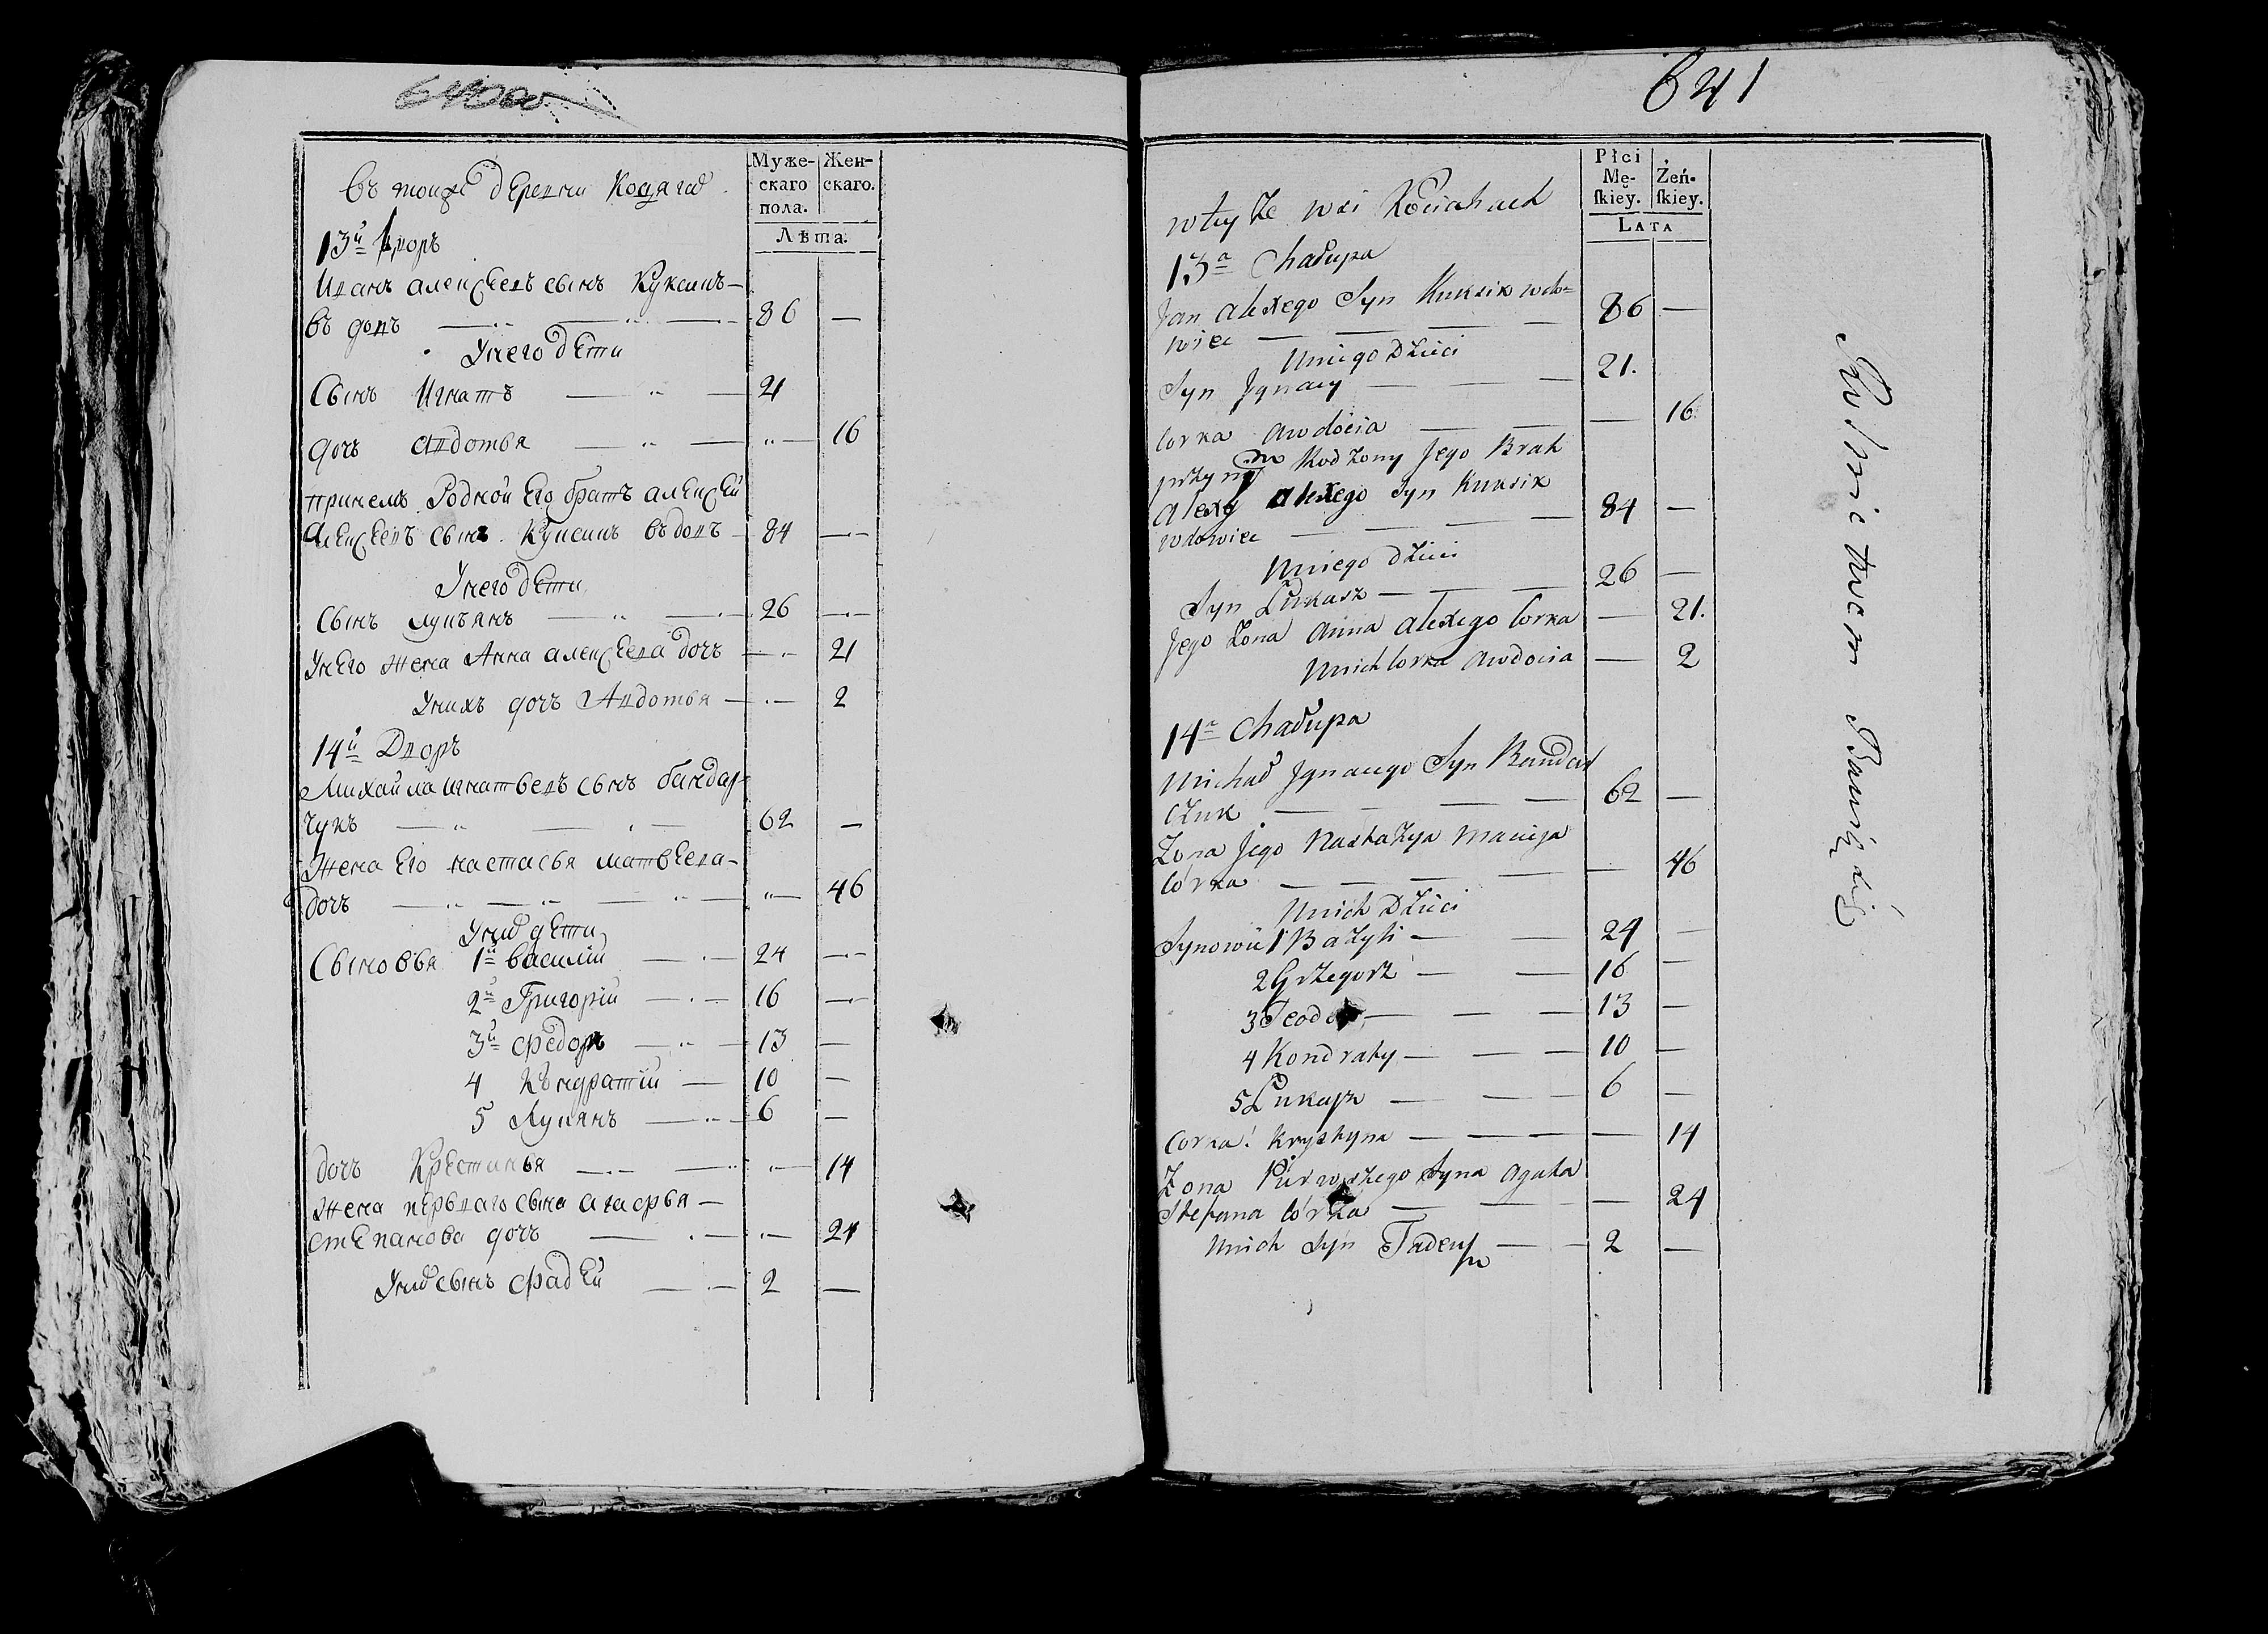 Муже-
скаго
пола.
Жен-
скаго.
Лѣта.
въ тойже деревни
13й Дворъ
Иванъ алексѣевъ сынъ Куксикъ
въ довъ — — — 86 —
Унего дѣти
Сынъ Игнатъ — — 21
дочъ авдотья — — — 16
принемъ Родной Его братъ алексѣй
алексѣевъ сынъ Куксикъ въдовъ — 84 —
Унего дѣти
Сынъ лукъянъ — — 26 —
Унего жена Анна алексѣева дочъ — — 21
Унихъ дочъ Авдотья — — 2
14й Дворъ
Михайла игнатьевъ сынъ бандар-
чукъ — — — 62 —
Жена Его настасья матвѣева
дочъ — — — — 46
Уних дѣти
Сыновья 1й василій — — 24 —
2й Григорій — — 16 —
3й Федоръ — — 13 —
4 Кондратій — 10 —
5 Лукянъ — — 6 —
дочъ Крестинья — — — 14
Жена перьваго сына агафья —
степанова дочъ — — — 24
Уних сынъ фадѣй — — 2 —
641
Płci
Mę-
ſkiey.
Żeń-
ſkiey.
LATA
wtey Ze wsi Kociahach
13a Chałupa
Jan alexego Syn Kuksik wdo-
wiec — — — — 86 —
Uniego Dzieci
Syn Jgnacy — — — 21.
Corka awdocia — — — 16
przy nim Rodzony Jego Brat
alexy alexego Syn Kuksik
wdowiec — — — — 84 —
Uniego dzieci
Syn Łukasz — — — 26 —
Jego Zona anna alexego Corka — 21.
Unich Corka awdocia — 2
14a Chałupa
Michał Jgnacego Syn Bandar
czuk — — — — 62 —
Zona Jego Nastazya Macieja
córka — — — — — 46
Unich Dzieci
Synowie 1 Bazyli — — 24 —
2 Grzegorz — — 16 —
3 Teodor — — — 13 —
4 Kondraty — — — 10 —
5 Łukasz — — — 6 —
Corka: Krystyna — — — — 14
Zona Pierwszego Syna agata
Stefana córka — — — — 24
Unich Syn Tadeusz — — 2 —